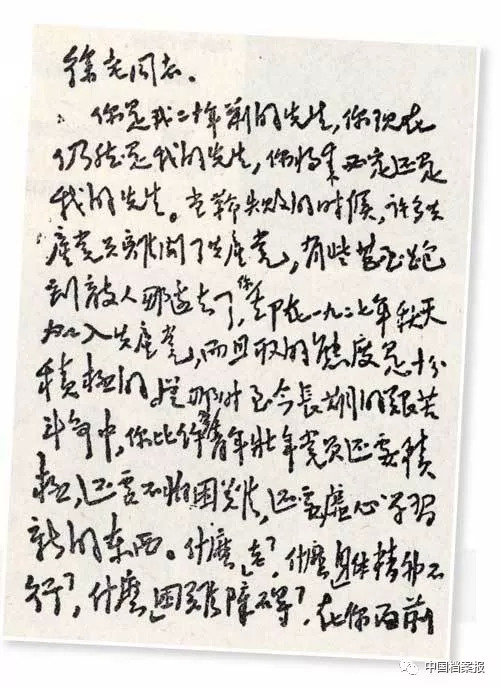 徐老同志，
你是我二十年前的先生，你现在
仍然是我的先生，你将来必定还是
我的先生。当革命失败的时候，许多共
產党员離開了共產党，有些甚至跑
到敵人那邊去了，你却在一九二七年秋天
加入共產党，而且取的態度是十分
積極的。從那时至今長期的艱苦
斗争中，你比許多青年壯年党员还要積
極，还要不怕困难，还要虚心学習
新的东西。什麼「老」，什麼「身体精神不
行」，什麼「困難障碍」，在你面前
中国档案报